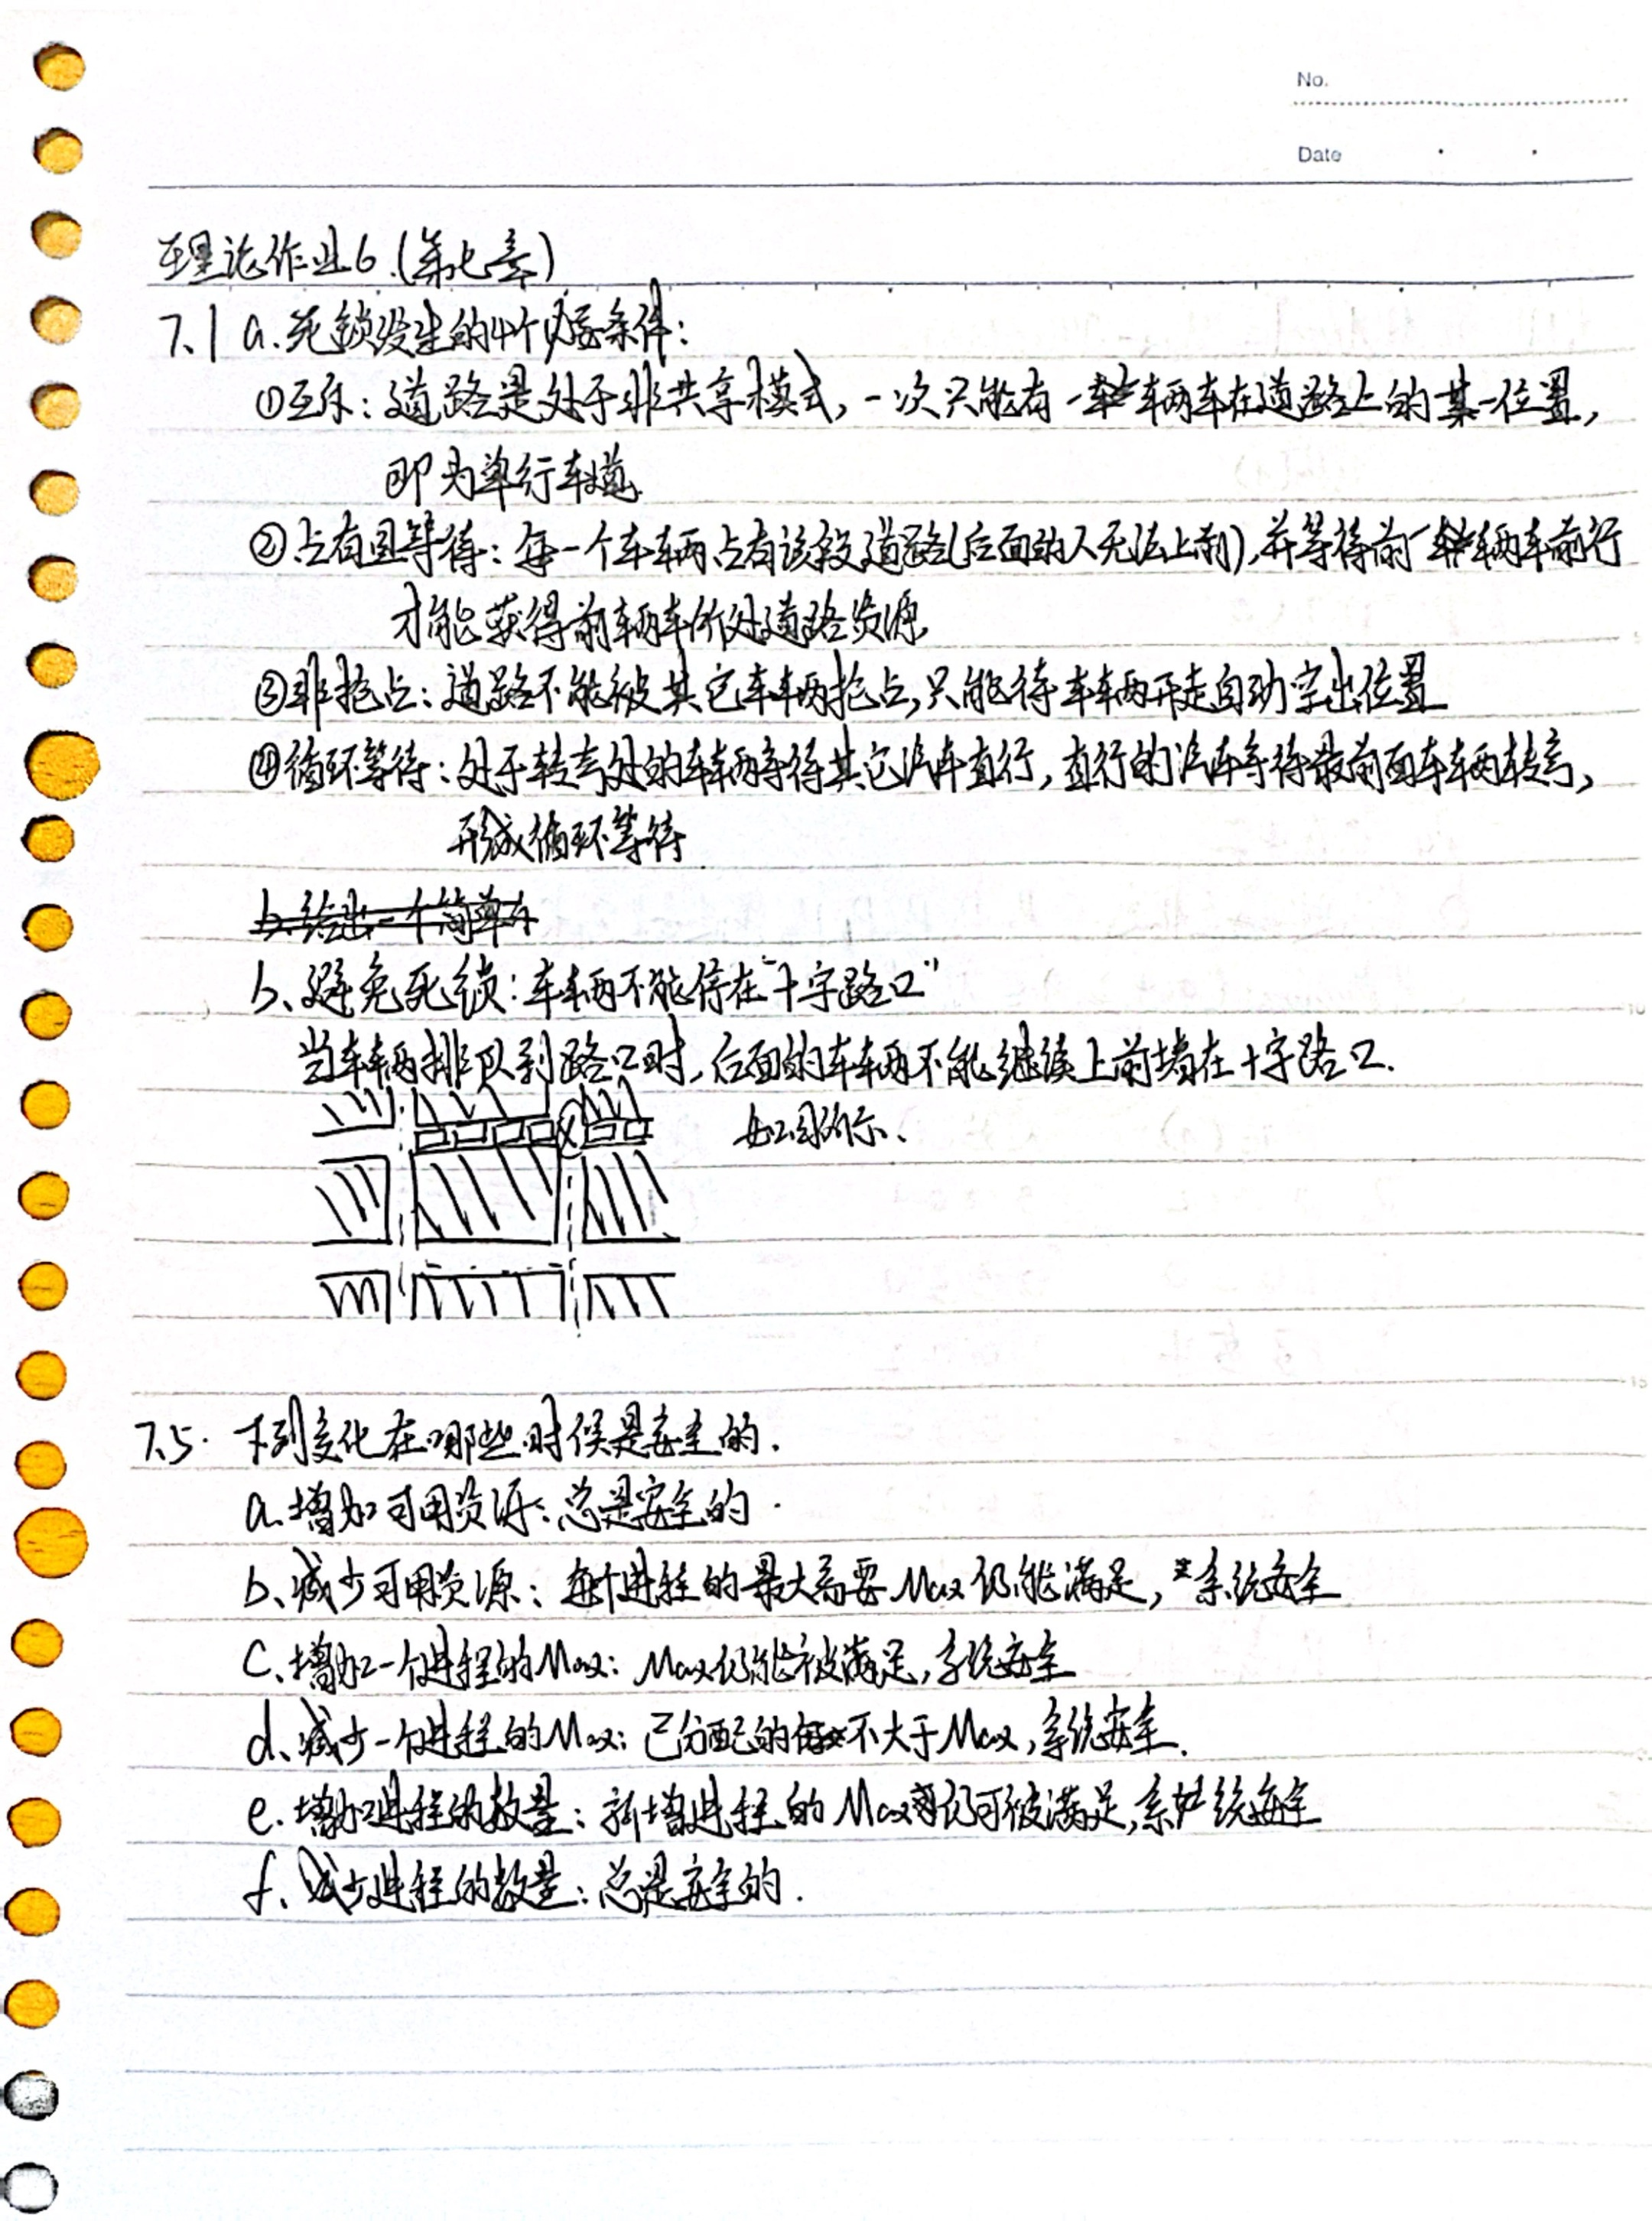 No.
Date
理论作业6.(第七章)
7.1 a.死锁发生的4个必要条件:
①互斥:道路是处于非共享模式,一次只能有一辆车在道路上的某一位置,
即为单行车道.
②占有且等待:每一个车辆占有该段道路(后面的人无法上前),并等待前一辆车前行
才能获得前辆车所处道路资源.
③非抢占:道路不能被其它车辆抢占,只能待车辆开走自动字出位置
④循环等待:处于转弯处的车辆等待其它汽车直行,直行的汽车等待最前面车辆转弯,
形成循环等待.
b.给出一个简单的
b、避免死锁:车辆不能停在“十字路口”
当车辆排队到路口时,后面的车辆不能继续上前堵在十字路口.
如图所示.
7.5. 下列变化在哪些时候是安全的.
a.增加可用资源:总是安全的.
b、减少可用资源:每个进程的最大需要Max仍能满足,系统安全
C、增加一个进程的Max:Max仍能被满足,系统安全
d、减少一个进程的Max:已分配的不大于Max,系统安全.
e.增加进程的数量:新增进程的Max仍可被满足,系统安全
f、减少进程的数量:总是安全的.